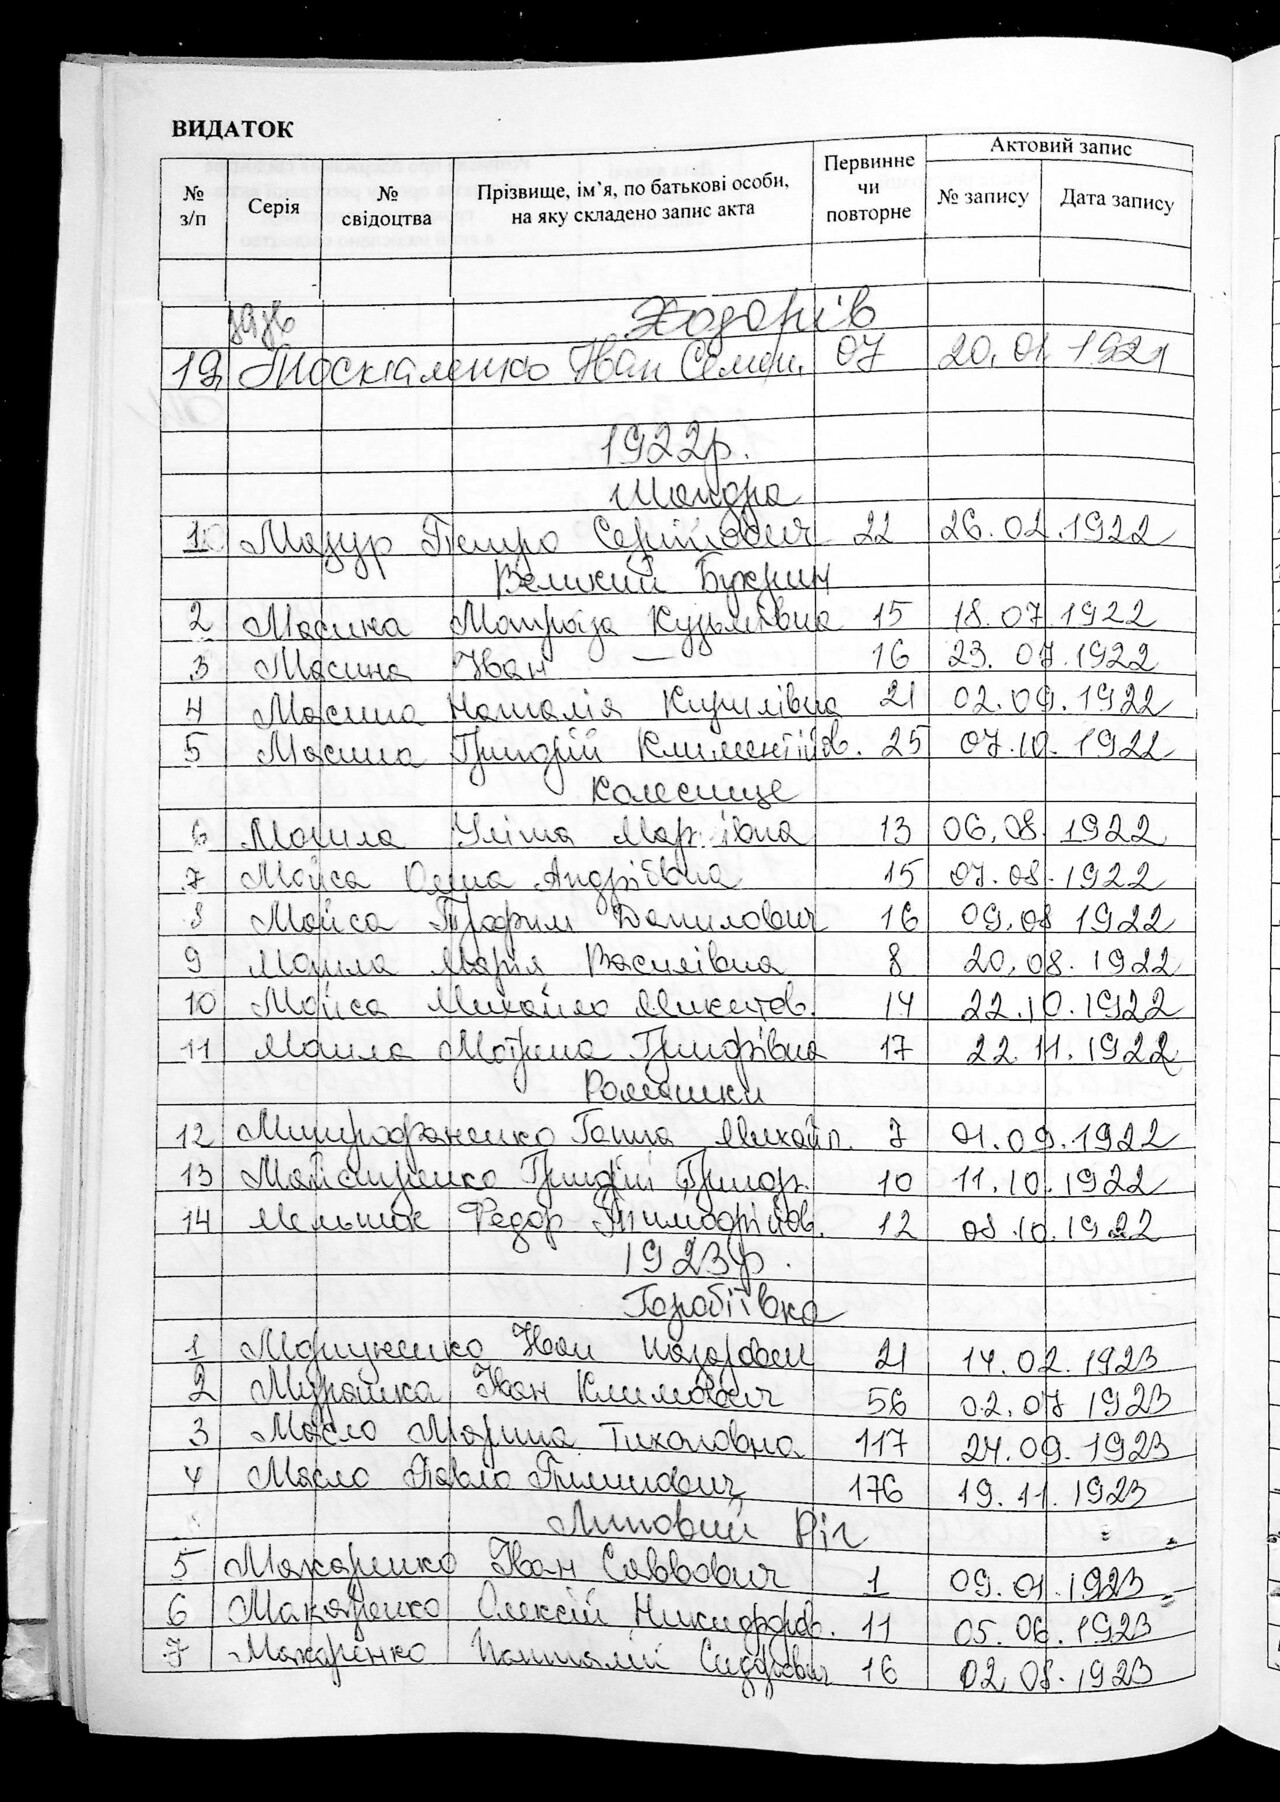 ВИДАТОК
№ з/п Серія № свідоцтва Прізвище, ім’я, по батькові особи, на яку складено запис акта Первинне чи повторне Актовий запис № запису Дата запису
Ходорів
19 Москаленко Іван Семен. 07 20.01 1921
1922р.
Шандра
1 Мазур Петро Сергійович 22 26.02.1922
Великий Букрин
2 Масина Мотрьза Кузьмівна 15 18.07.1922
3 Масина Іван — 16 23.07.1922
4 Масина Наталія Кирилівна 21 02.09.1922
5 Масина Григорій Климентійов. 25 07.10.1922
Колесище
6 Могила Уліта 13 06.08.1922
7 Мойса Олена Андріївна 15 07.08.1922
8 Мойса Трофим Данилович 16 09.08 1922
9 Могила Марія Василівна 8 20.08.1922
10 Мойса Михайло Микитов. 14 22.10.1922
11 Могила Мотрина Григорівна 17 22.11.1922
Ромашки
12 Митрофаненко Ганна Михайл. 7 01.09.1922
13 Майстренко Григорій Григор. 10 11.10.1922
14 Мельник Федор Тимофійов. 12 08.10.1922
1923р.
Горобіївка
1 Іван Назарович 21 14.02.1923
2 Мурашка Іван Климович 56 02.07 1923
3 Масло Марина Тихоновна 117 24.09.1923
4 Масло Павло Пилипович 176 19.11.1923
Липовий Ріг
5 Макаренко Іван Саввович 1 09.01.1923
6 Макаренко Олексій Никифоров. 11 05.06.1923
7 Макаренко Пантелій Сидорович 16 02.08.1923